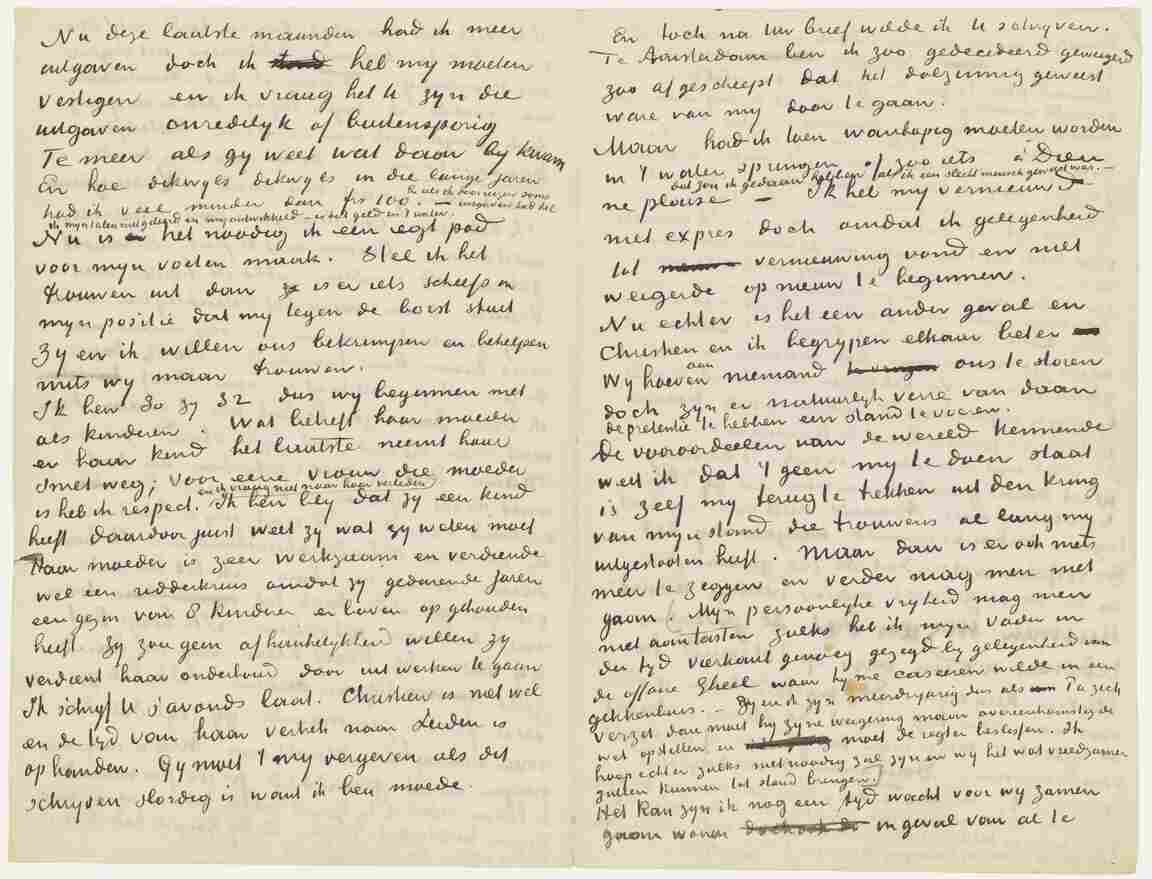 Nu deze laatste maanden had ik meer
uitgaven doch ik heb my moeten
vestigen en ik vraag het U zyn die
uitgaven onredelyk of buitensporig
Te meer als gy weet wat daar by kwam
En hoe dikwyls dikwyls in die lange jaren
had ik veel minder dan frs 100. —
En als ik daarvoor soms uitgaven had heb
ik myn talen uitgeleerd en my ontwikkeld — is het geld in 't water.
Nu is het noodig ik een regt pad
voor myn voeten maak. Stel ik het
trouwen uit dan is er iets scheefs in
myn positie dat my tegen de borst stuit
Zy en ik willen ons bekrimpen en behelpen
mits wy maar trouwen.
Ik ben 30 zy 32 dus wy beginnen niet
als kinderen. Wat betreft haar moeder
en haar kind het laatste neemt haar
smet weg; voor eene vrouw die moeder
is heb ik respect. en ik vraag niet naar haar verleden Ik ben bly dat zy een kind
heeft daardoor juist weet zy wat zy weten moet
Haar moeder is zeer werkzaam en verdiende
wel een ridderkruis omdat zy gedurende jaren
een gezin van 8 kinderen er boven op gehouden
heeft Zy zou geen afhankelykheid willen zy
verdient haar onderhoud door uit werken te gaan
Ik schryf U s'avonds laat. Christien is niet wel
en de tyd van haar vertrek naar Leiden is
op handen. Gy moet 't my vergeven als dit
schryven slordig is want ik ben moede.
En toch na Uw brief wilde ik U schryven.
Te Amsterdam ben ik zoo gedecideerd geweigerd
zoo afgescheept dat het dolzinnig geweest
ware van my door te gaan.
Maar had ik toen wanhopig moeten worden
in 't water springen of zoo iets à Dieu
dat zou ik gedaan hebben als ik een slecht mensch geweest was. —
ne plaise — Ik heb my vernieuwd
niet expres doch omdat ik gelegenheid
tot vernieuwing vond en niet
weigerde op nieuw te beginnen.
Nu echter is het een ander geval en
Christien en ik begrypen elkaar beter
Wy hoeven aan niemand ons te storen
doch zyn er natuurlyk verre van daan
de pretentie te hebben een stand te voeren.
De vooroordeelen van de wereld kennende
weet ik dat 't geen my te doen staat
is zelf my terug te trekken uit den kring
van myn stand die trouwens al lang my
uitgestooten heeft. Maar dan is er ook niets
meer te zeggen en verder mag men niet
gaan! Myn persoonlyke vryheid mag men
niet aantasten zulks heb ik myn vader in
der tyd vierkant genoeg gezegd by gelegenheid van
de affaire Gheel waar hy me caseren wilde in een
gekkenhuis. — Zy en ik zyn meerderjarig dus als Pa zich
verzet dan moet hy zyne weigering maar overeenkomstig de
wet opstellen en moet de regter beslissen. Ik
hoop echter zulks niet noodig zal zyn en wy het wat vreedzamer
zullen kunnen tot stand brengen.
Het kan zyn ik nog een tyd wacht voor wy zamen
gaan wonen in geval van al te